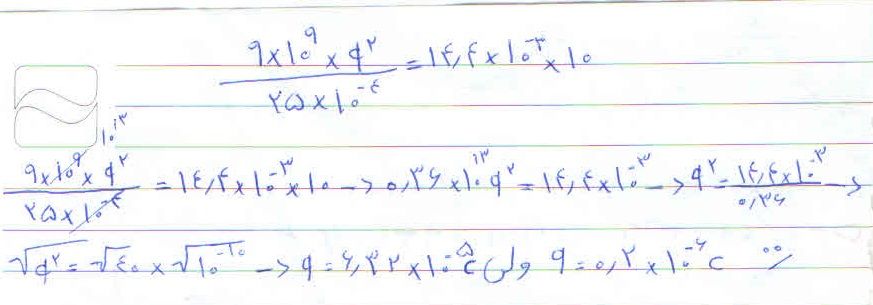 ۹×۱۰^۹ × q^۲ / ۲۵×۱۰^-۴ = ۱۴,۴×۱۰^-۳ ×۱۰
۹×۱۰^۹ × q^۲ / ۲۵×۱۰^-۴ ۱۰^۱۳ = ۱۴,۴×۱۰^-۳ ×۱۰ → ۰,۳۶ ×۱۰^۱۳ q^۲ = ۱۴,۴×۱۰^-۳ → q^۲ = ۱۴,۴×۱۰^-۳ / ۰,۳۶ →
√q^۲ = √۴۰ × √۱۰^-۱۰ → q = ۶,۳۲×۱۰^-۵ c ولی q = ۰,۲×۱۰^-۶ c